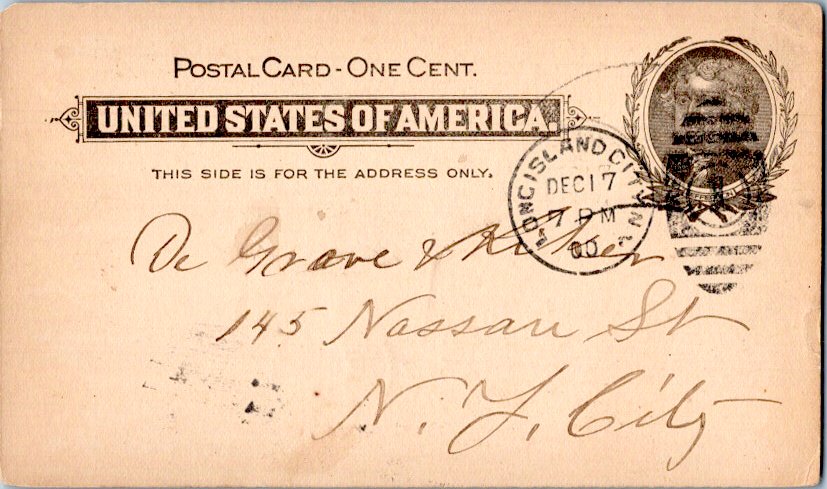 POSTAL CARD - ONE CENT.
UNITED STATES OF AMERICA.
THIS SIDE IS FOR THE ADDRESS ONLY.
LONG ISLAND CITY N.Y.
DEC 17
7 PM
00
De Grave &
145 Nassau St
N. Y. City